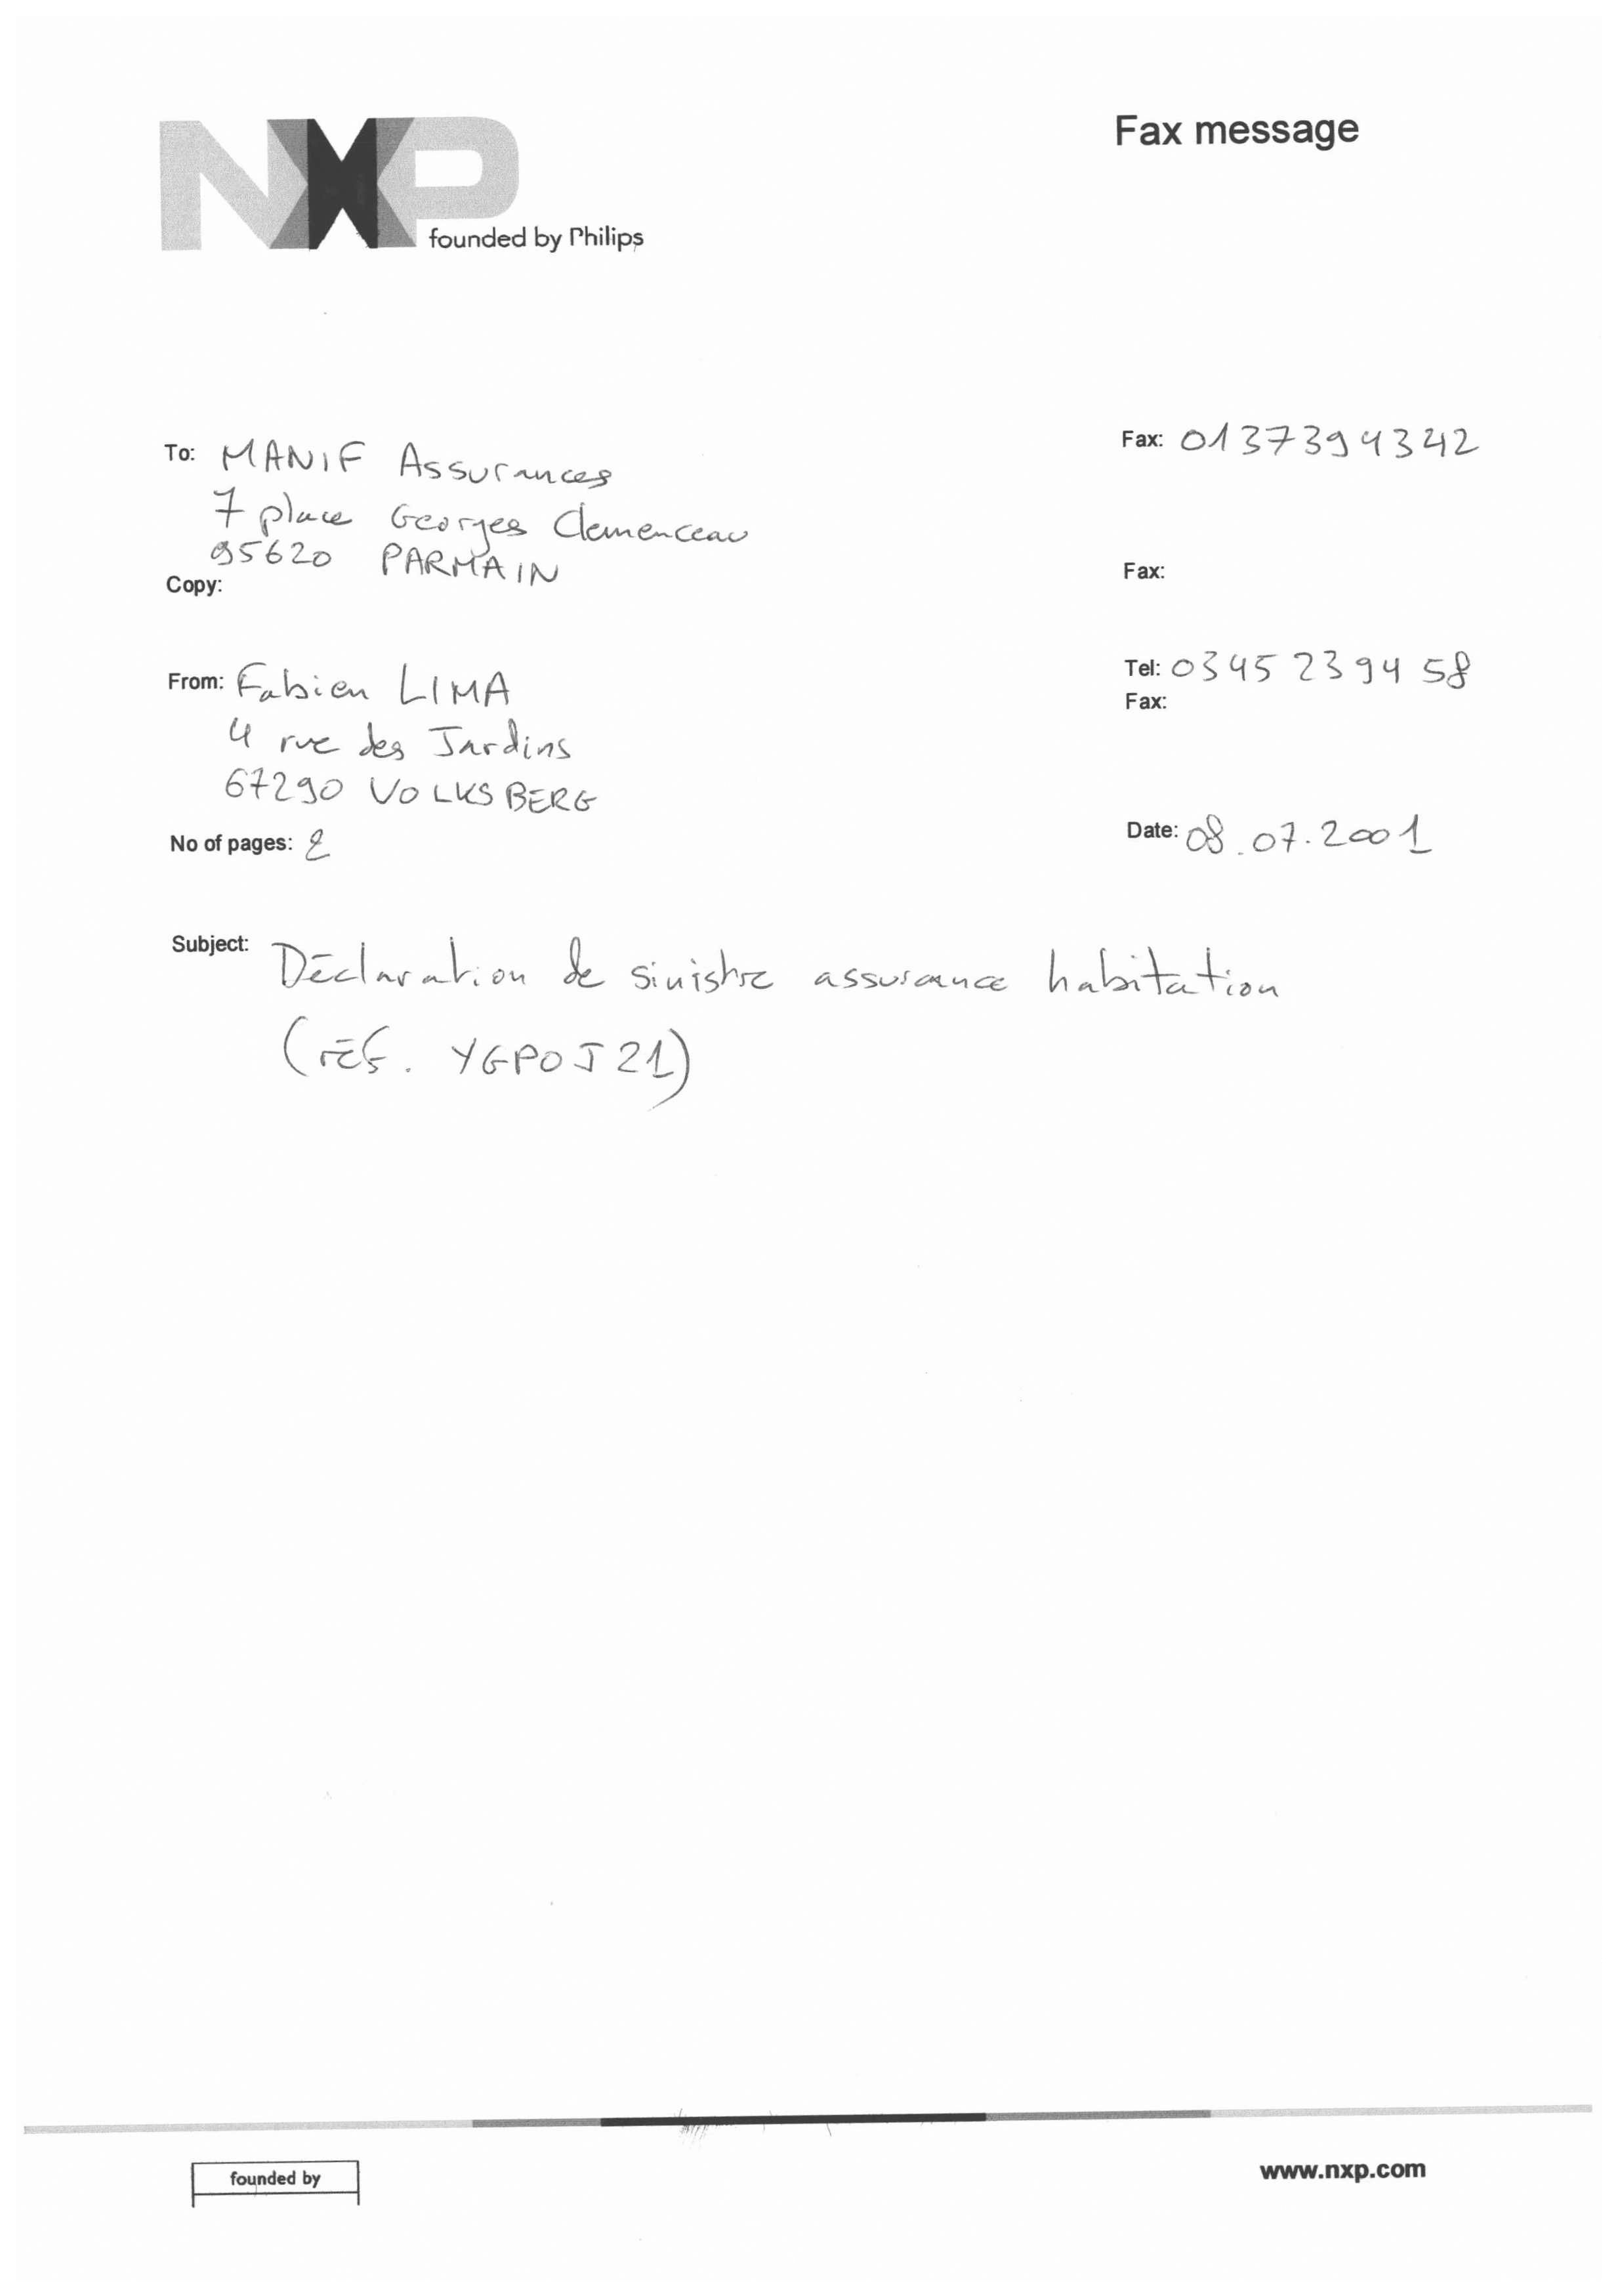 NXP
founded by Philips
Fax message
To: MANIF Assurances
7 place Georges Clemenceau
95620 PARMAIN
Fax: 0137394342
Copy:
Fax:
From: Fabien LIMA
4 rue des Jardins
67290 VOLKSBERG
Tel: 0345 2394 58
Fax:
No of pages: 2
Date: 08.07.2001
Subject: Déclaration de sinistre assurance habitation
(réf. YGPOJ21)
founded by
www.nxp.com